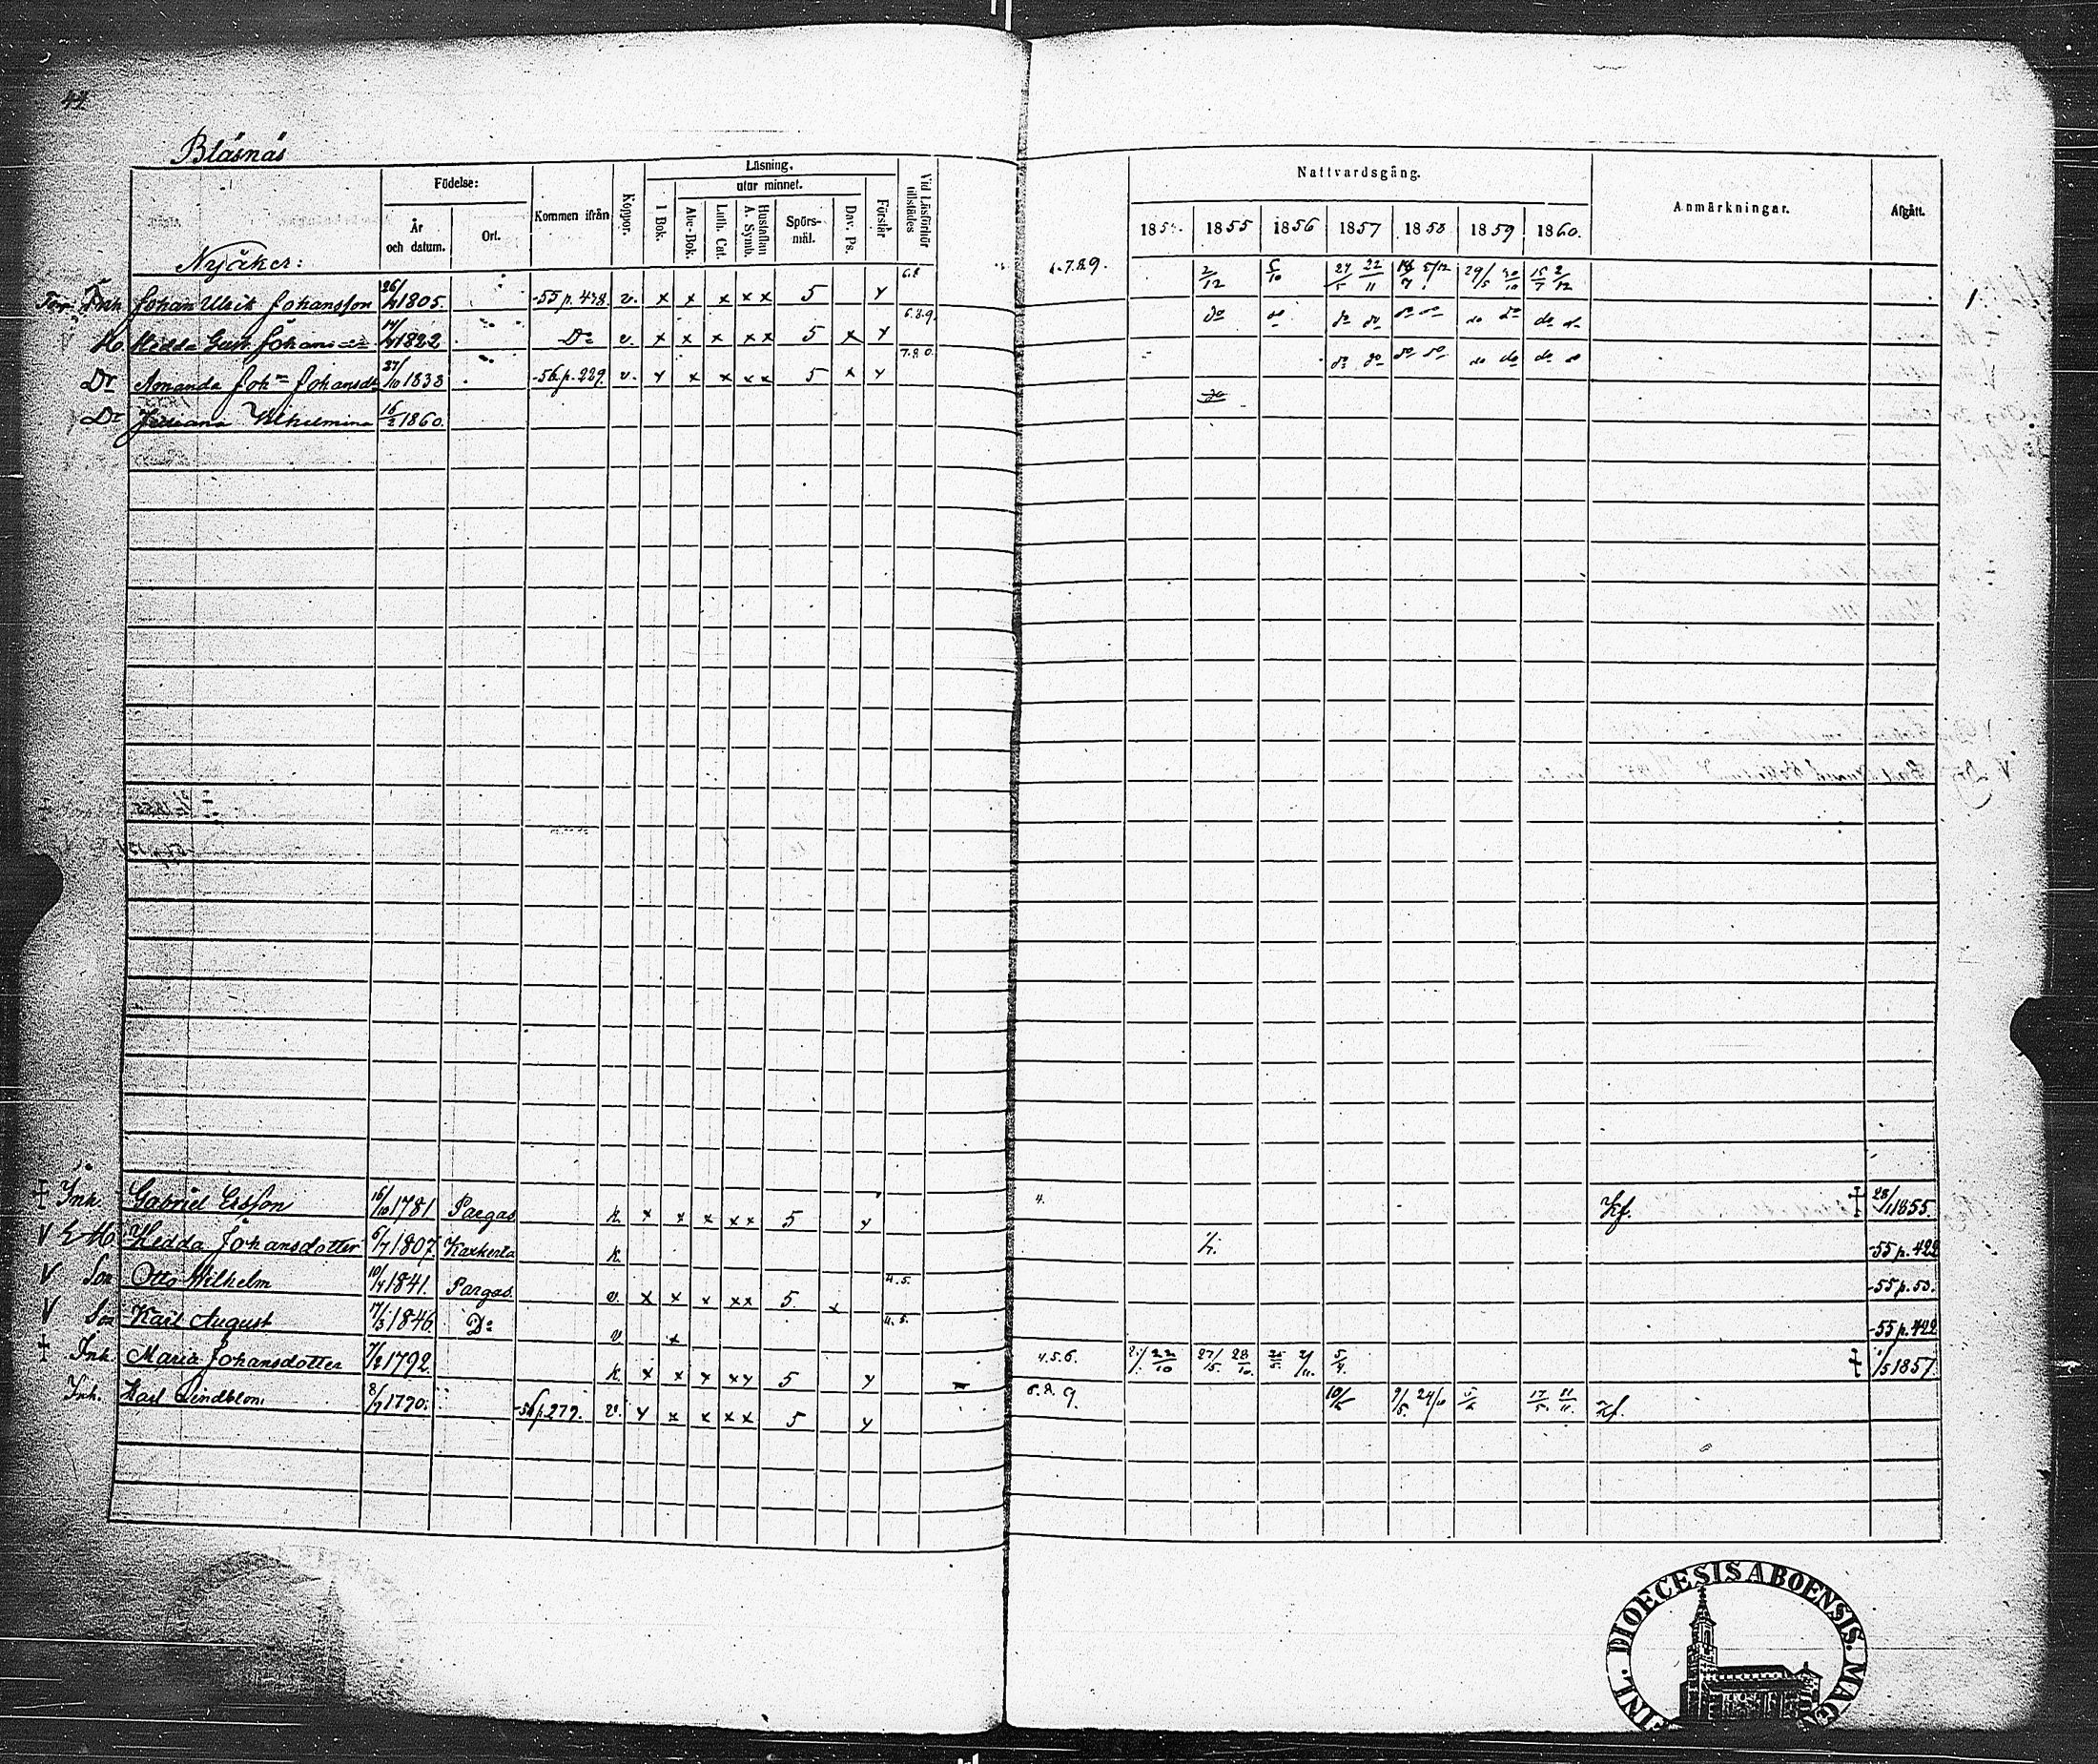 44
Bläsnäs
Födelse: Kommen ifrån Koppor. Läsning. Vid Läsförhör tillstädes Nattvardsgång. Anmärkningar. Afgått.
År och datum. Ort. I Bok. utur minnet. Förstår
Abc-Bok. Luth. Cat. Hustaflan A. Symb. Spörsmål. Dav. Ps. 185 1855 1856 1857 1858 1859 1860.
Nyåker:
Inh. Johan Ulrik Johansson 26/ 1805. -55 p. 478. v. x x x x x 5 x 6.8 6.7.8.9. 2/12 5/10 27/5 22/11 5/12 29/5 30/10 15/7 2/12
Hu. Hedda Gust. Johans 1822 Do v. x x x x x 5 x x 6.8.9. do do do do do do do do do
Dr Amanda Joh Johansdr 27/10 1838 -56 p. 229. v. x x x x x 5 x x 7.8.0. do do do do do do do
Dr Vilhelmina 16/2 1860. do
Inh. Gabriel Ersson 16/10 1781 Pargas k. x x x x x 5 x 4. Kf. 28/11 1855.
E. Hu. Hedda Johansdotter 6/7 1807. Kaxkerta k. -55 p. 422
V Son Otto Wilhelm 10/4 1841. Pargas. v. x x x x x 5 x 4.5. -55 p. 50.
V Son Karl August 7/3 1846. Do v x 4.5. -55 p. 422
Inh. Maria Johansdotter 7/2 1792. k. x x x x x 5 x 4.5.6. 22/10 27/5 28/10 25/5 5/4 1/5 1857.
Inh. Karl Lindblom 8/7 1790. -56 p. 279. v. x x x x x 5 x 6.8.9. 10/ 9/5 24/10 17/5 11/11 Kf.
DIOECESIS ABOENSIS.